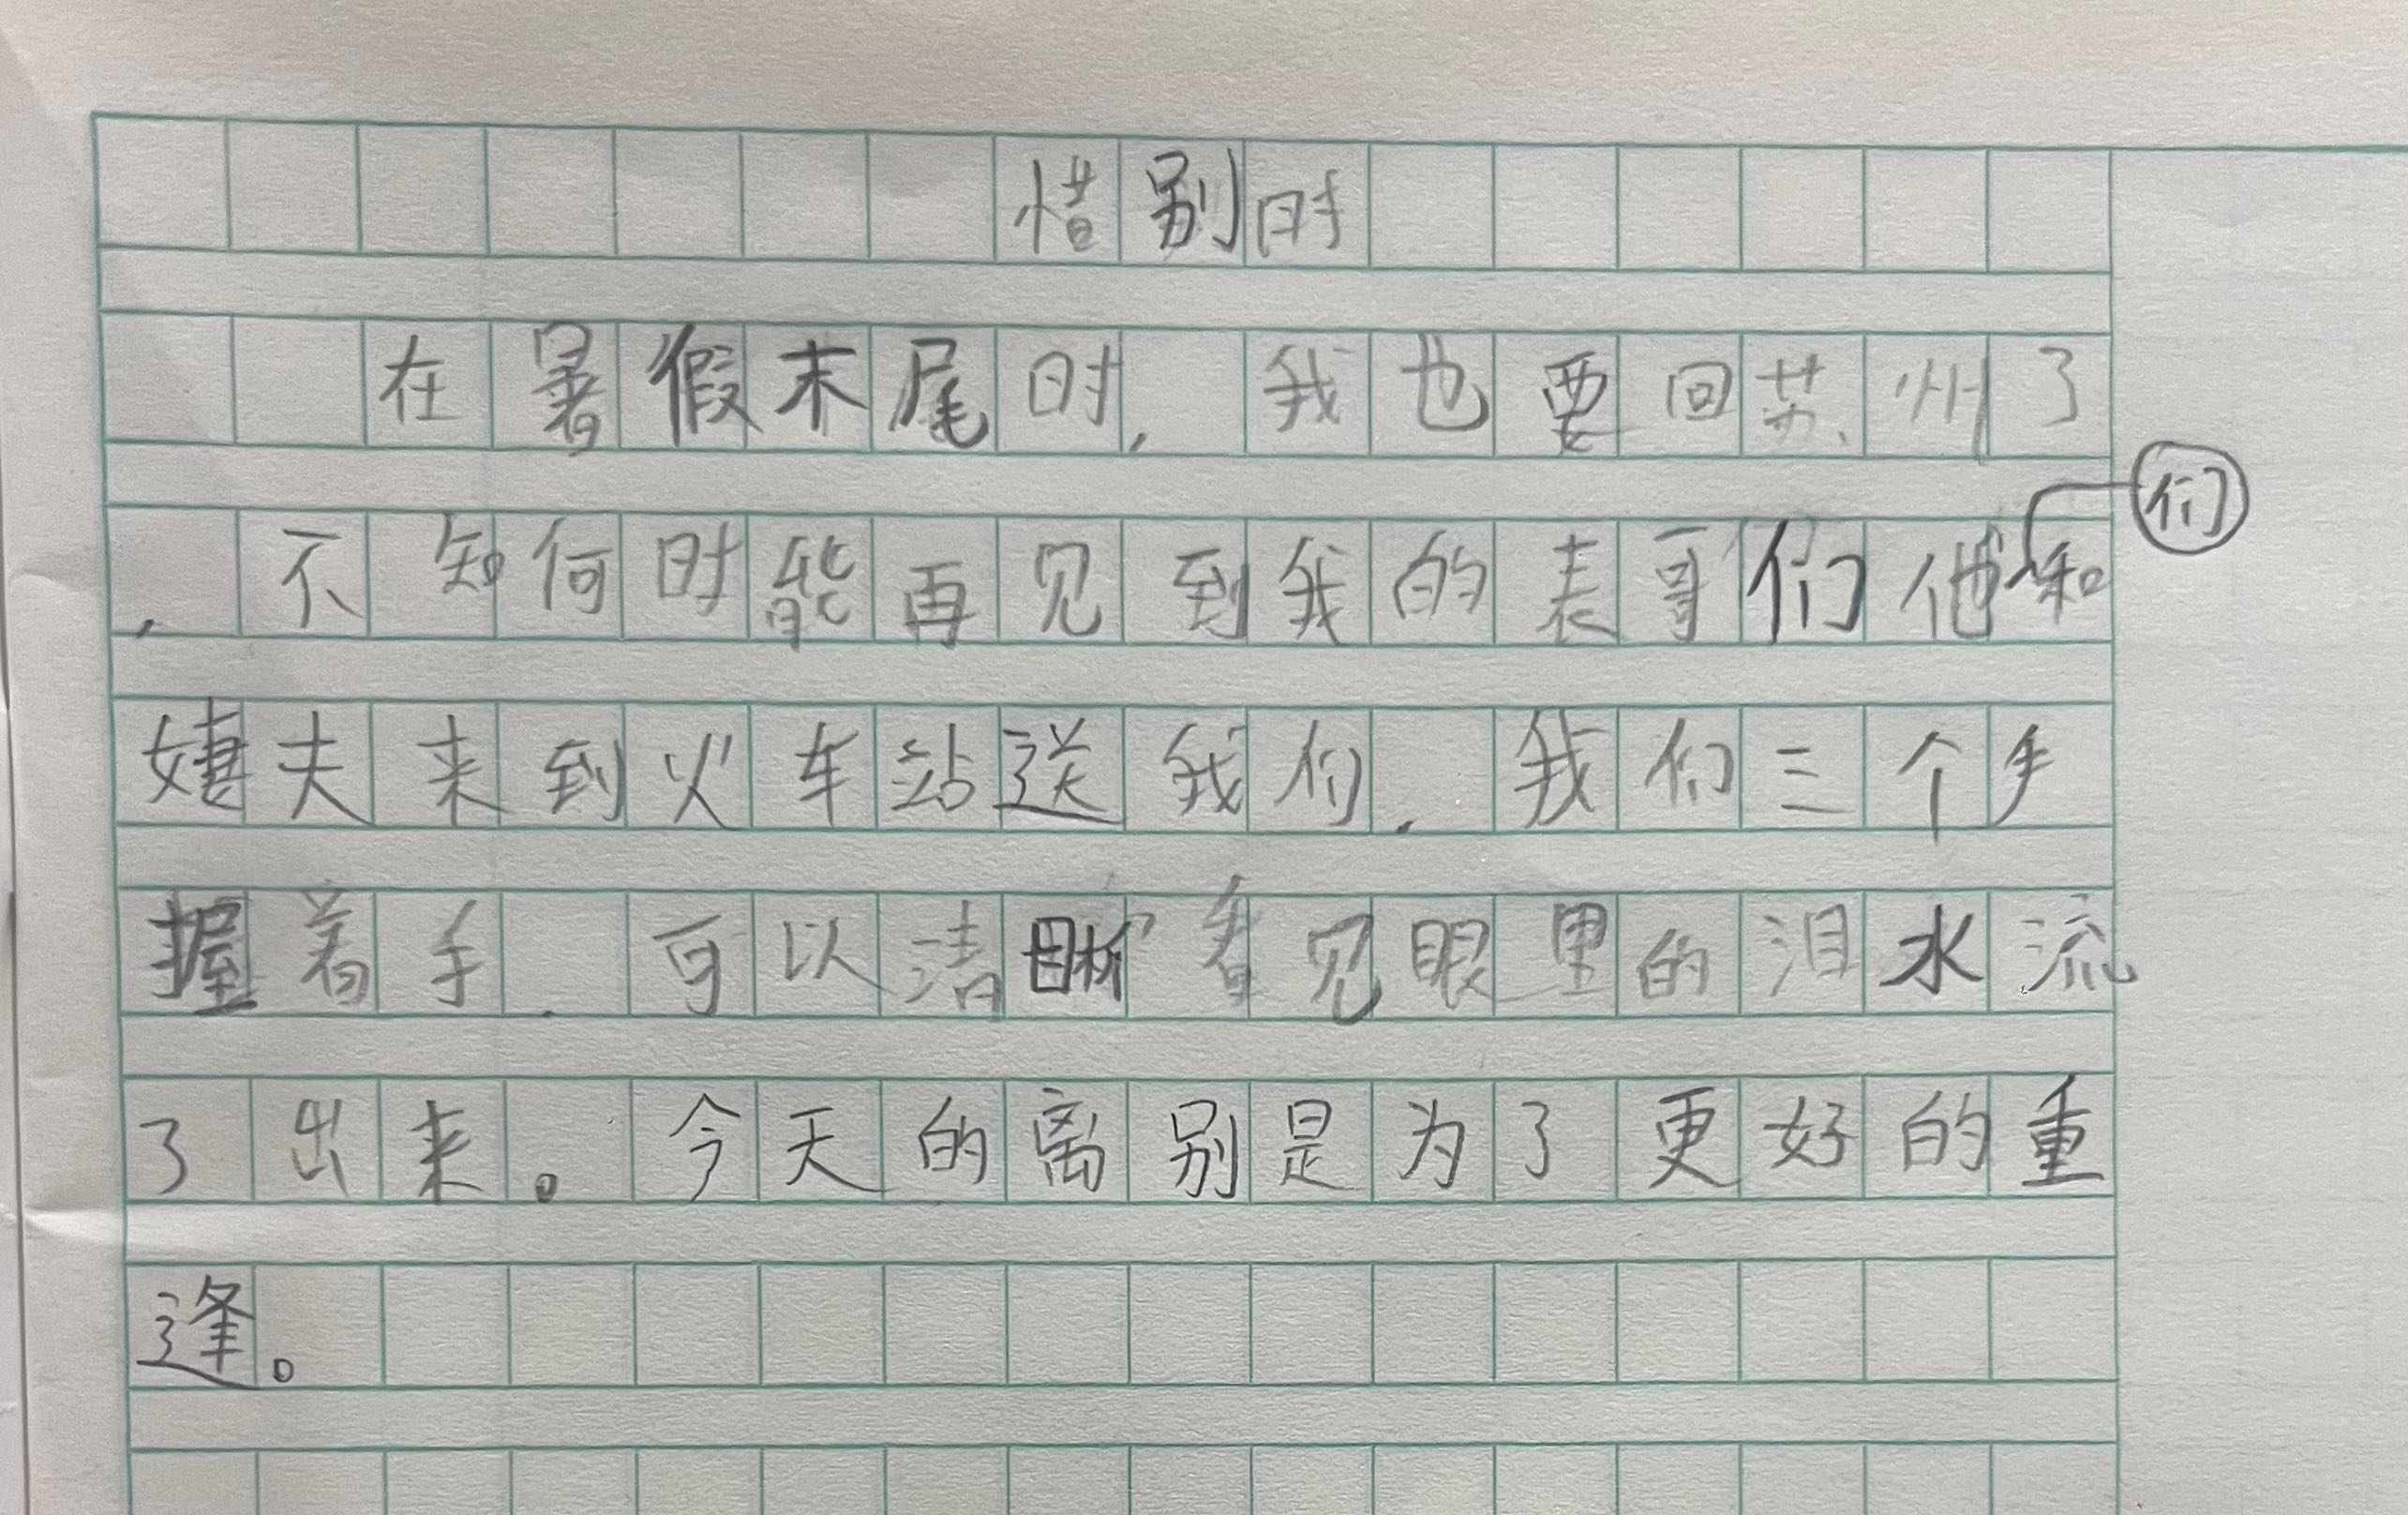 惜别时
在暑假末尾时，我也要回苏州了
，不知何时能再见到我的表哥们他们和
夫来到火车站送我们，我们三个手
握着手，可以清晰看见眼里的泪水流
了出来。今天的离别是为了更好的重
逢。